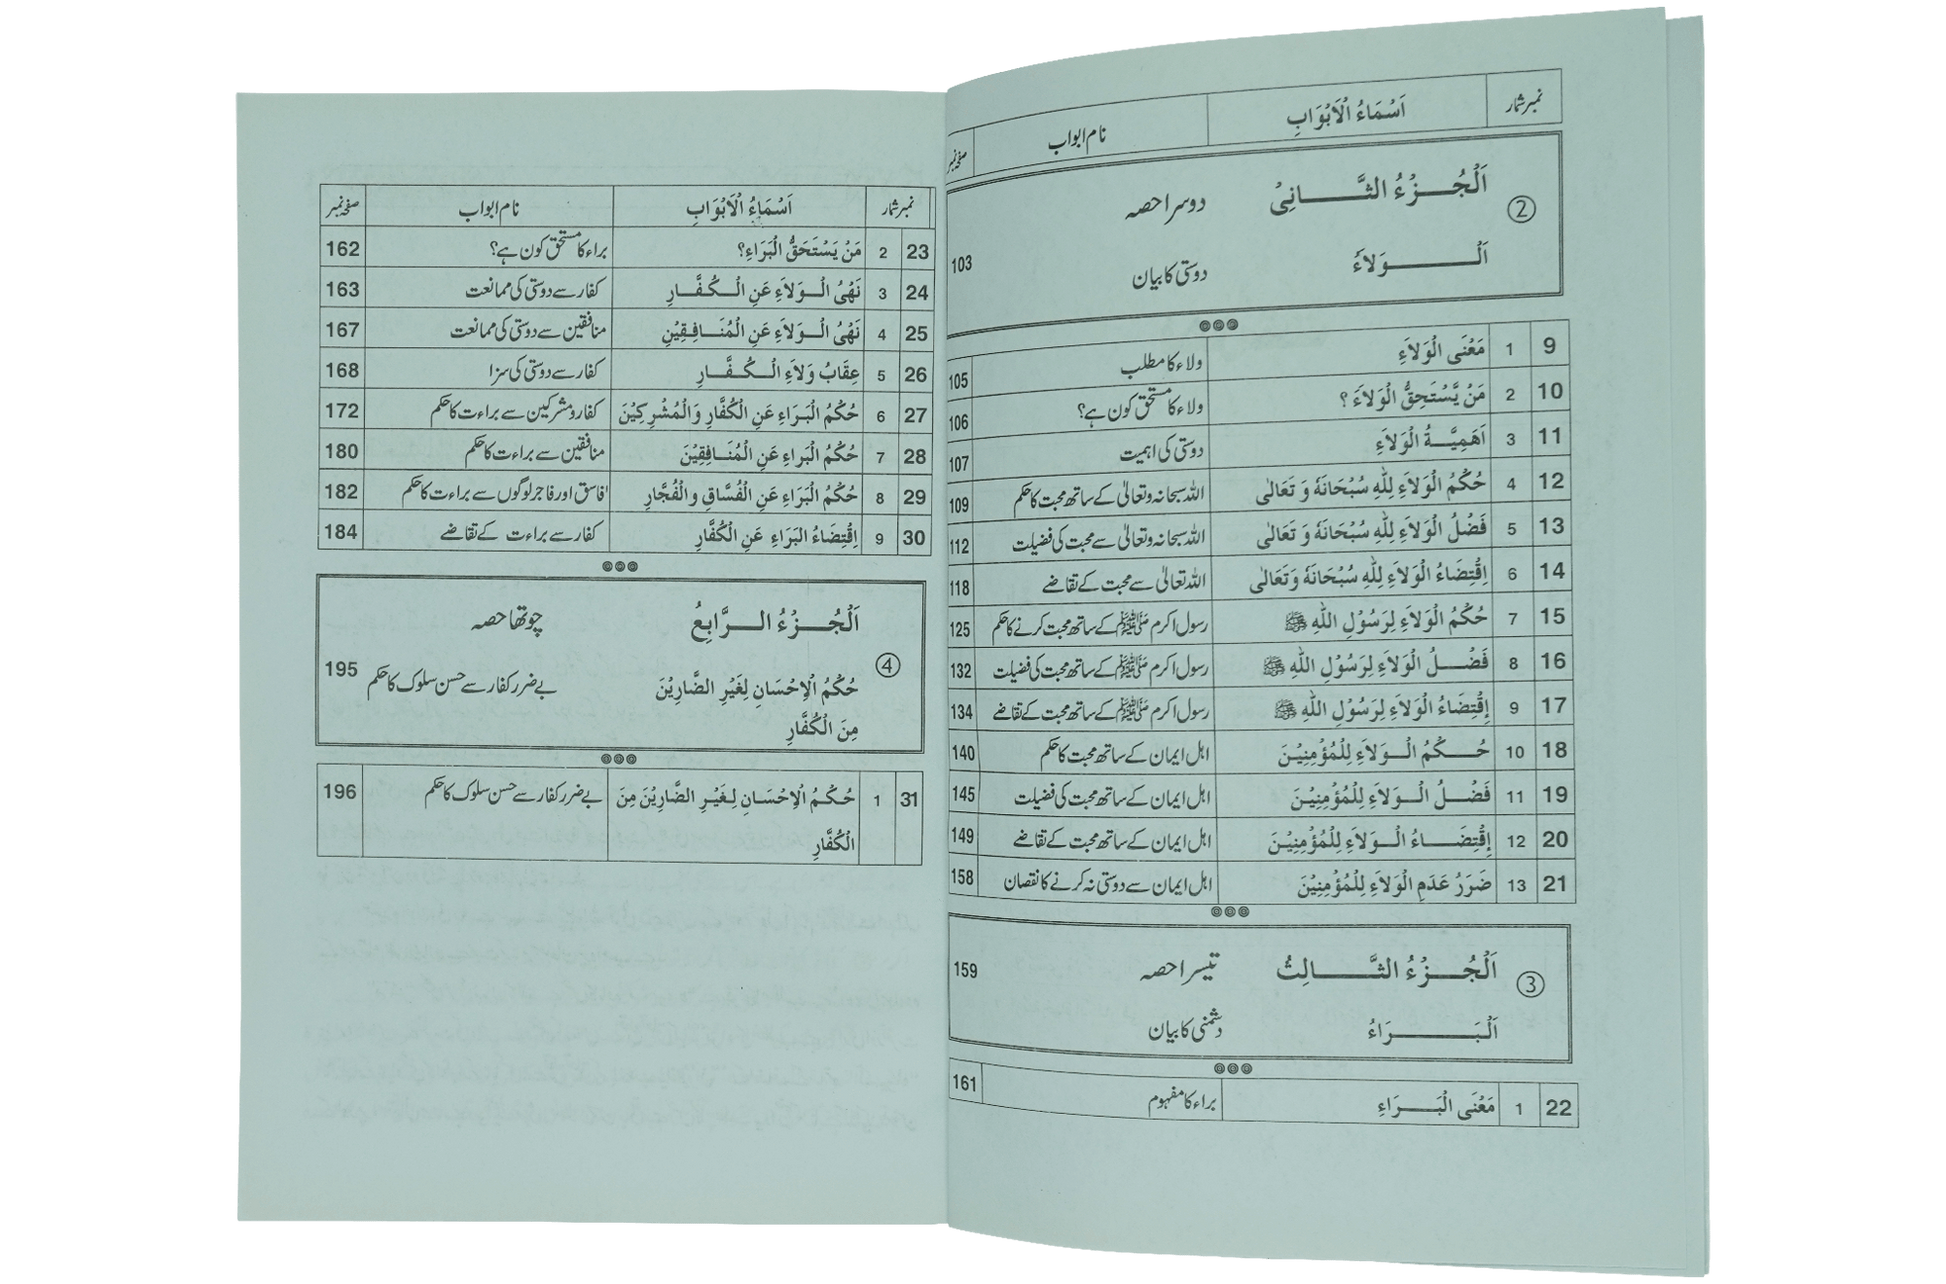 نمبر شمار اَسْمَاءُ الْاَبْوَابِ نام ابواب صفحہ نمبر
② اَلْجُــزْءُ الثَّـــانِیْ دوسرا حصہ
اَلْـــوَلَاءُ دوستی کا بیان 103
9 1 مَعْنَی الْوَلَاءِ ولاء کا مطلب 105
10 2 مَنْ یَّسْتَحِقُّ الْوَلَاءَ ؟ ولاء کا مستحق کون ہے؟ 106
11 3 اَهَمِیَّــةُ الْوَلَاءِ دوستی کی اہمیت 107
12 4 حُكْمُ الْوَلَاءِ لِلّٰهِ سُبْحَانَهٗ وَ تَعَالٰی اللہ سبحانہ وتعالیٰ کے ساتھ محبت کا حکم 109
13 5 فَضْلُ الْوَلَاءِ لِلّٰهِ سُبْحَانَهٗ وَ تَعَالٰی اللہ سبحانہ وتعالیٰ سے محبت کی فضیلت 112
14 6 اِقْتِضَاءُ الْوَلَاءِ لِلّٰهِ سُبْحَانَهٗ وَتَعَالٰی اللہ تعالیٰ سے محبت کے تقاضے 118
15 7 حُكْمُ الْوَلَاءِ لِرَسُوْلِ اللّٰهِ ﷺ رسول اکرم ﷺ کے ساتھ محبت کرنے کا حکم 125
16 8 فَضْــلُ الْوَلَاءِ لِرَسُوْلِ اللّٰهِ ﷺ رسول اکرم ﷺ کے ساتھ محبت کی فضیلت 132
17 9 اِقْتِضَاءُ الْوَلَاءِ لِرَسُوْلِ اللّٰهِ ﷺ رسول اکرم ﷺ کے ساتھ محبت کے تقاضے 134
18 10 حُــكْمُ الْــوَلَاءِ لِلْمُؤْمِنِیْنَ اہل ایمان کے ساتھ محبت کا حکم 140
19 11 فَضْــلُ الْــوَلَاءِ لِلْمُؤْمِنِیْنَ اہل ایمان کے ساتھ محبت کی فضیلت 145
20 12 اِقْتِضَــاءُ الْــوَلَاءِ لِلْمُؤْمِنِیْنَ اہل ایمان کے ساتھ محبت کے تقاضے 149
21 13 ضَرَرُ عَدَمِ الْوَلَاءِ لِلْمُؤْمِنِیْنَ اہل ایمان سے دوستی نہ کرنے کا نقصان 158
③ اَلْجُــزْءُ الثَّـــالِثُ تیسرا حصہ 159
اَلْبَـــرَاءُ دشمنی کا بیان
22 1 مَعْنَی الْبَــرَاءِ براء کا مفہوم 161
نمبر شمار اَسْمَاءُ الْاَبْوَابِ نام ابواب صفحہ نمبر
23 2 مَنْ یَسْتَحَقُّ الْبَرَاءِ؟ براء کا مستحق کون ہے؟ 162
24 3 نَهْیُ الْــوَلَاءِ عَنِ الْــكُــفَّــارِ کفار سے دوستی کی ممانعت 163
25 4 نَهْیُ الْــوَلَاءِ عَنِ الْمُنَــافِــقِیْنَ منافقین سے دوستی کی ممانعت 167
26 5 عِقَابُ وَلَاءِ الْــكُــفَّــارِ کفار سے دوستی کی سزا 168
27 6 حُكْمُ الْبَرَاءِ عَنِ الْكُفَّارِ وَالْمُشْرِكِیْنَ کفار و مشرکین سے براءت کا حکم 172
28 7 حُكْمُ الْبَراءِ عَنِ الْمُنَــافِقِیْنَ منافقین سے براءت کا حکم 180
29 8 حُكْمُ الْبَرَاءِ عَنِ الْفُسَّاقِ والْفُجَّارِ فاسق اور فاجر لوگوں سے براءت کا حکم 182
30 9 اِقْتِضَاءُ البَرَاءِ عَنِ الْكُفَّارِ کفار سے براءت کے تقاضے 184
④ اَلْجُــزْءُ الــرَّابِعُ چوتھا حصہ
حُكْمُ الْاِحْسَانِ لِغَیْرِ الضَّارِیْنَ بے ضرر کفار سے حسن سلوک کا حکم 195
مِنَ الْكُفَّارِ
31 1 حُكْمُ الْاِحْسَـانِ لِـغَیْـرِ الضَّارِیْنَ مِنَ بے ضرر کفار سے حسن سلوک کا حکم 196
الْكُفَّارِ